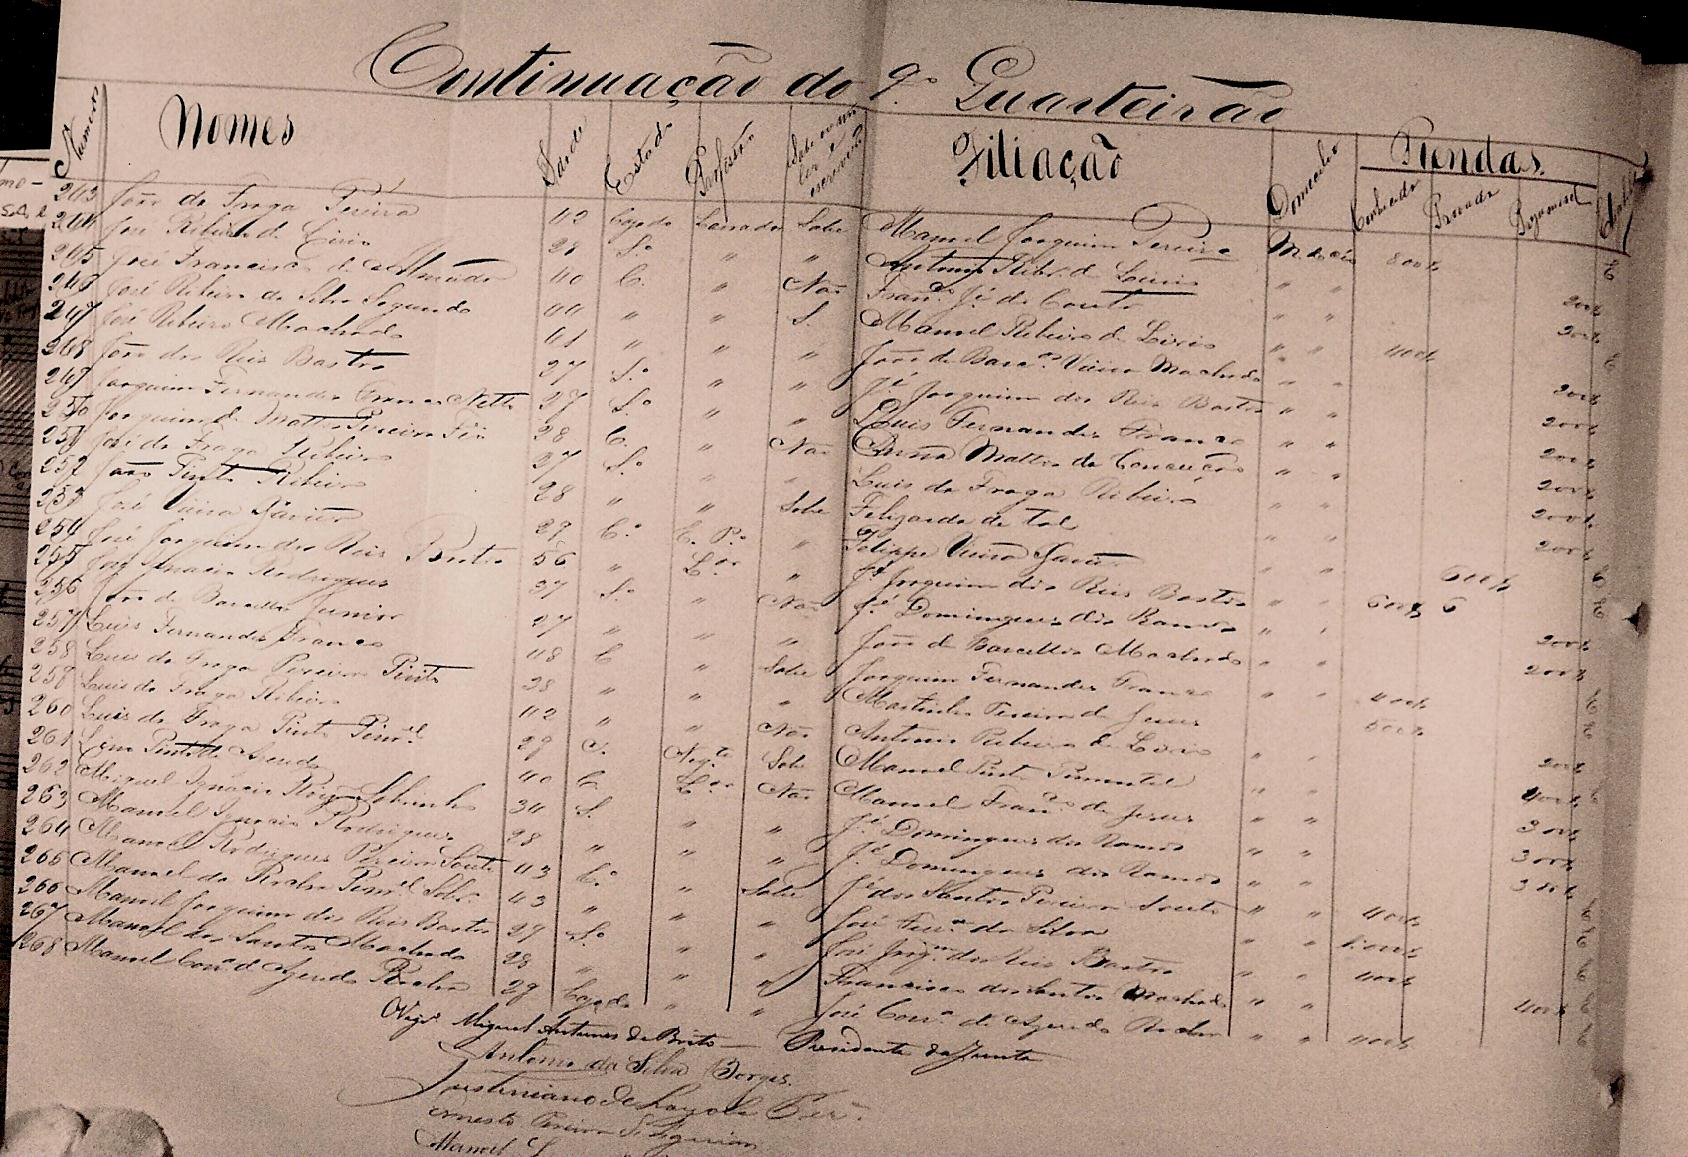 Continuação do 9º Quarteirão
Numeros Nomes Idade Estado Profissão Sabe ou não ler e escrever Filiação Domicilio Rendas Conhecida Provada Presumivel
243 João de Fraga Pereira 42 Cazado Lavrador Sabe Manoel Joaquim Pereira 800$ E
244 José Ribeiro de Lirio 28 Sº " " Antonio Ribrº de Lirio " " 200$
245 José Francisco de 40 C. " Não Franco Jé do Couto " " 200$
246 José Ribeiro da Silva Segundo 44 " " S. Manoel Ribeiro de Lirio " " 400$ E
247 José Ribeiro Machado " " " João de Barcos Vieira Machado " " 200$
248 João dos Reis Bastos 27 Sº " " Jé Joaquim dos Reis Bastos " " 200$
249 Joaquim Fernandes Franco Netto 27 Sº " Luis Fernandes Franco " " 200$
250 Joaquim de Mattos Pereira 28 C. " Não Mattos da Conceição " " 200$
251 José de Fraga Ribeiro 37 Sº " " Luis de Fraga Ribeiro " " 200$
252 João Pinto Ribeiro 28 " " Sabe Felizardo de Tal " " 200$
253 José Vieira Xavier 29 Cº E. Pº " Felippe Vieira Xavier " " 600$
254 José Joaquim dos Reis Bastos 56 " Lor " Jé Joaquim dos Reis Bastos " " 600$
255 José Ignacio Rodrigues 37 Sº " Não Jé Domingues dos Ramos " " 200$
256 João de Barcellos Junior 27 " " " João de Barcellos Machado " " 200$
257 Luis Fernandes Franco 48 C " Sabe Joaquim Fernandes Franco " " 400$
258 Luis de Fraga Pereira Pinto 38 " " " Martinho Pereira de Jesus 500$
259 Luis de Fraga Ribeiro 42 " " Não Antonio Ribeiro de Lirio " " 200$
260 Luis de Fraga Pinto Pimel 29 S. Negte Sabe Manoel Pinto Pimentel " " 400$
261 Lino Pinto de Azevedo 40 C. Lor Não Manoel Franco de Jesus " " 300$
262 Miguel Ignacio Sobrinho 34 S. " " Jé Domingues dos Ramos " " 300$
263 Manoel Ignacio Rodrigues 28 " " " Jé Domingues dos Ramos " " 300$
264 Manoel Rodrigues Pereira Souto 43 Cº " Sabe Jé dos Santos Pereira Souto " " 400$
265 Manoel da Rocha Pimel Sobr. 43 " " " José da Silva " "
266 Manoel Joaquim dos Reis Bastos 27 Sº " " José Joqm dos Reis Bastos " " 400$
267 Manoel dos Santos Machado 28 " " " Francisco dos Santos Machado " " 400$
268 Manoel Corrª d'Azevedo Rocha 29 Cazado " " José Corrª de Azevedo Rocha " " 400$
Vigrº Miguel Antunes de Brito — Presidente da Junta
Antonio da Silva Borges.
Justiniano de Loyola
Ernesto Pereira
Manoel